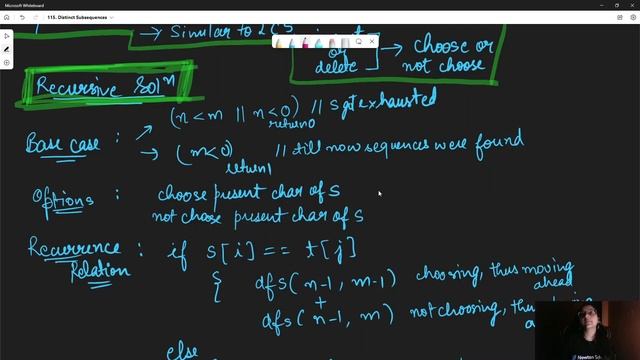 Microsoft Whiteboard
115. Distinct Subsequences
→ Similar to LCS
or
delete → choose or
not choose
Recursive solⁿ
(n<m || n<0) // s got exhausted
return 0
Base case :
→ (m<0) // till now sequences were found
return 1
Options : choose present char of S
not choose present char of S
Recurrence : if s[i] == t[j]
Relation
{ dfs(n-1, m-1) choosing, thus moving
ahead
+
dfs(n-1, m) not choosing,
else